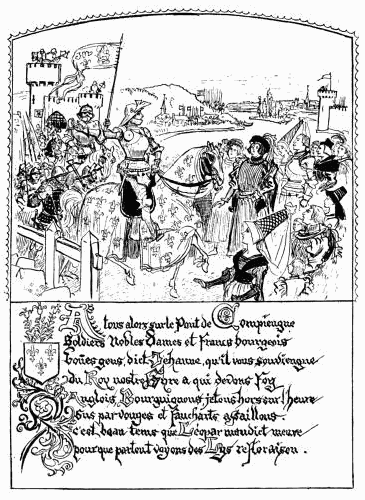 A tous alors sur le Pont de Compiengne
Soldiers Nobles Dames et Francs bourgeois
bones gens, dict Jehanne, qu'il vous souviengne
du Roy nostre Syre a qui devons foy
Anglois, Bourguignons, jetons hors sur l'heure
Sus par vouges et faucharts assaillons
c'est beau tems que Leopar maudict meure
pour que partout voyons des Lys refloraison.